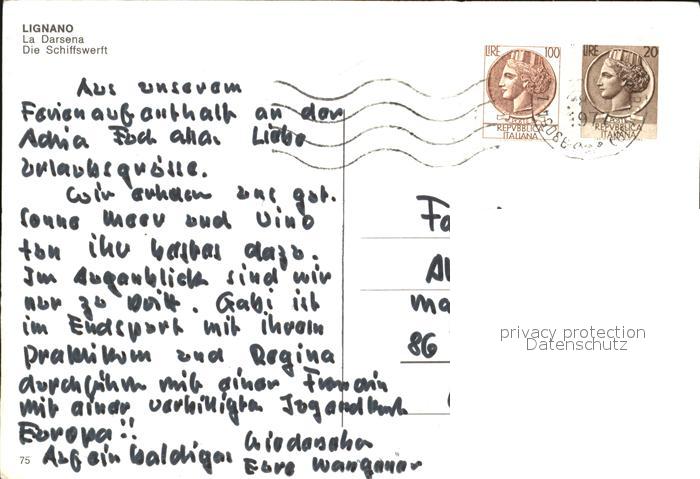 LIGNANO
La Darsena
Die Schiffswerft
LIRE 100
LIRE 20
POSTE
REPVBBLICA
ITALIANA
POSTE
REPVBBLICA
ITALIANA
Aus unserem
Ferienaufenthalt an der
Adria Euch allen Liebe
Urlaubsgrüsse.
Wir erholen uns gut.
Sonne Meer und Vino
tun ihr bestes dazu.
Im Augenblick sind wir
nur zu Dritt. Gabi ist
im Endspurt mit ihrem
Praktikum und Regina
durch mit einer Freundin
mit einer verbilligten
Europa!!
Auf ein baldiges Wiedersehen
Eure
Fa
Al
Ma
86
privacy protection
Datenschutz
75